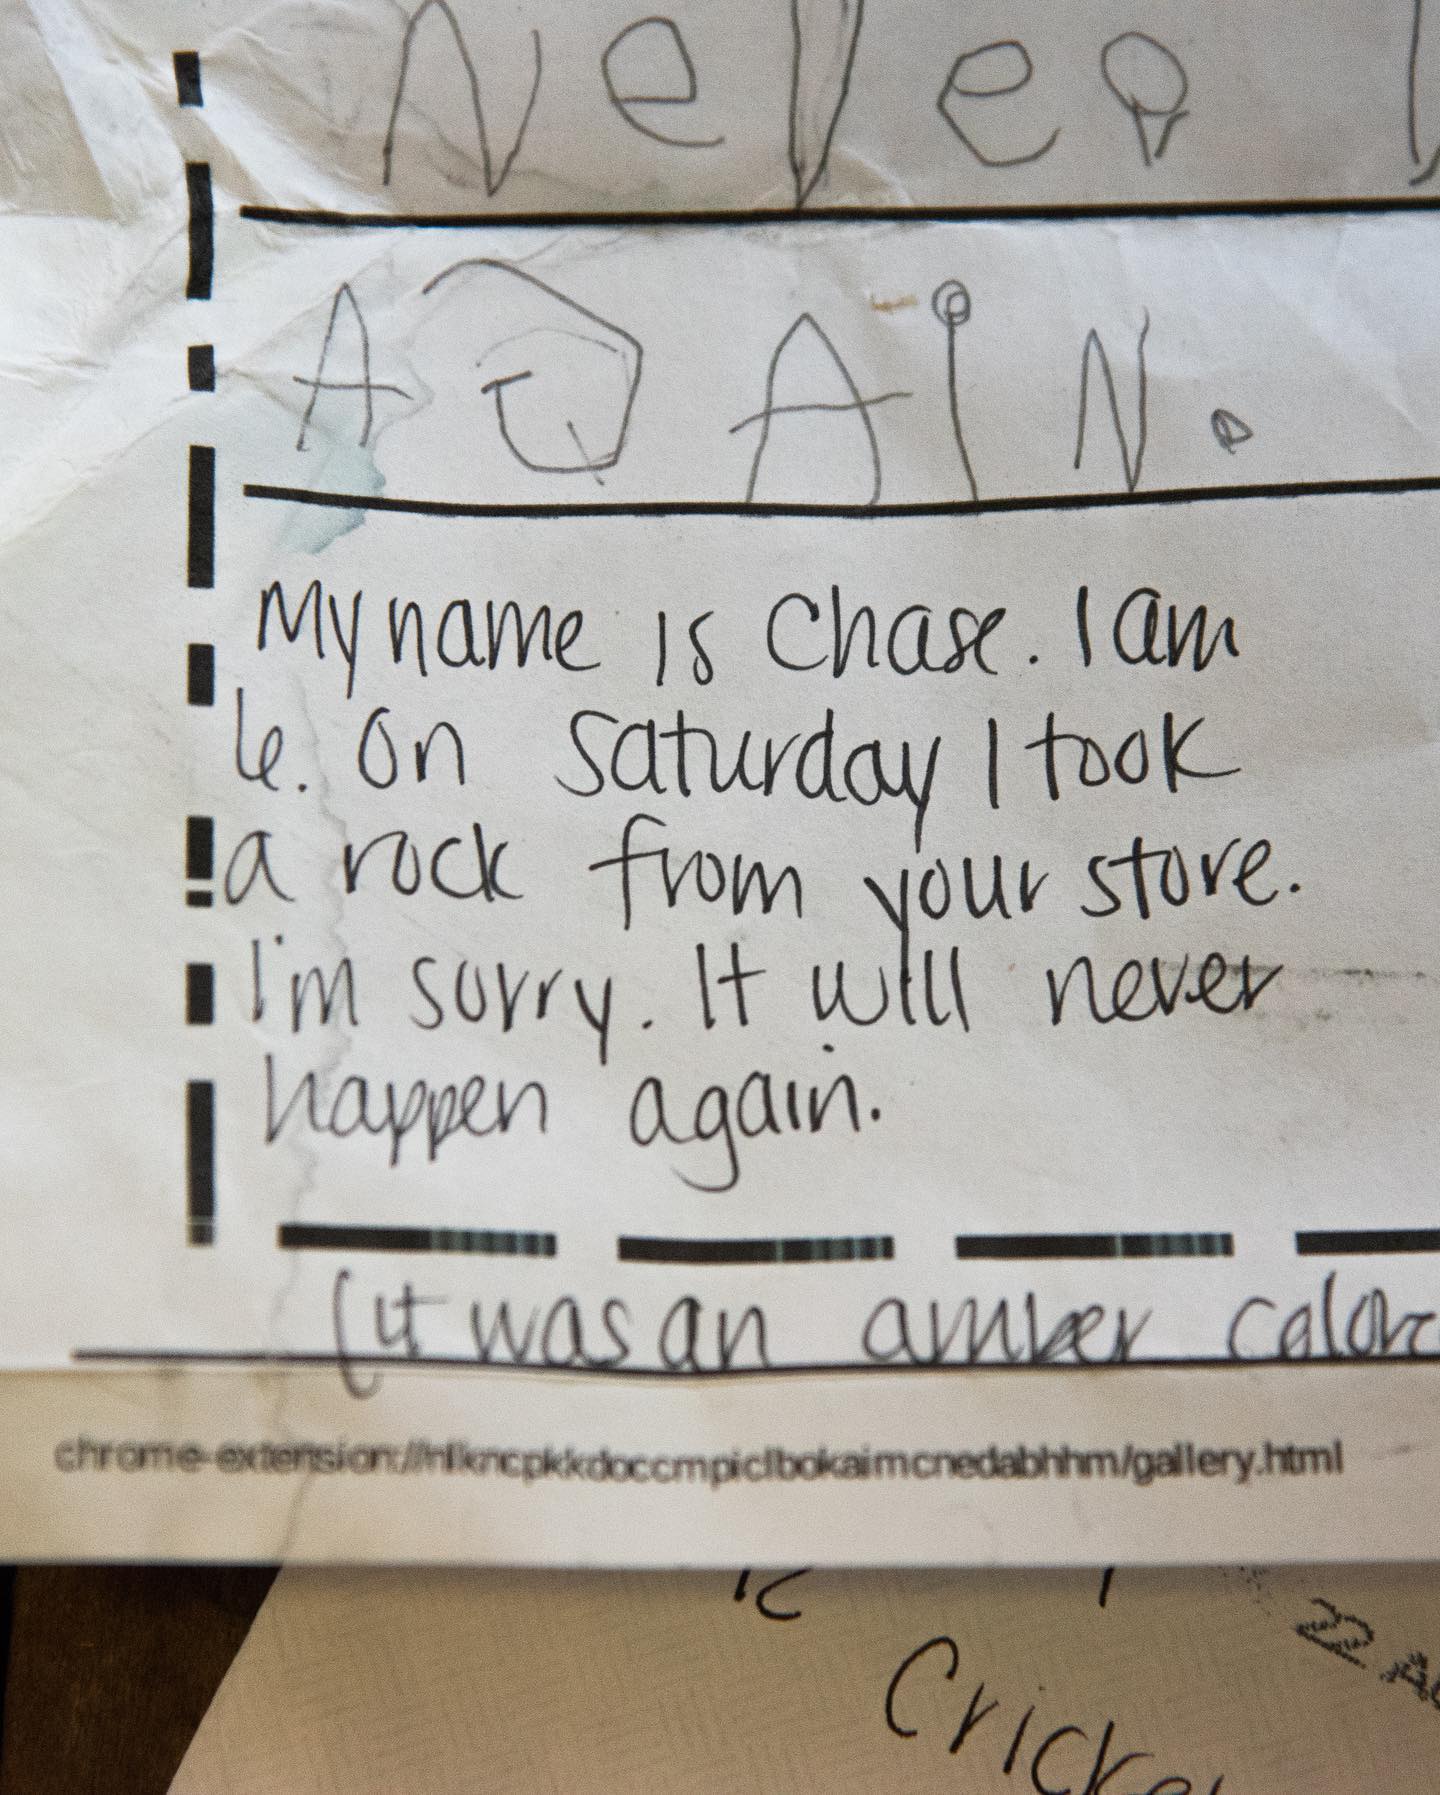 Never
AGAiN.
My name is Chase. I am
6. On Saturday I took
a rock from your store.
I'm sorry. It will never
happen again.
(it was an amber color
chrome-extension://nlkncpkkdoccmpiclbokaimcnedabhhm/gallery.html
22 AU
Cricke